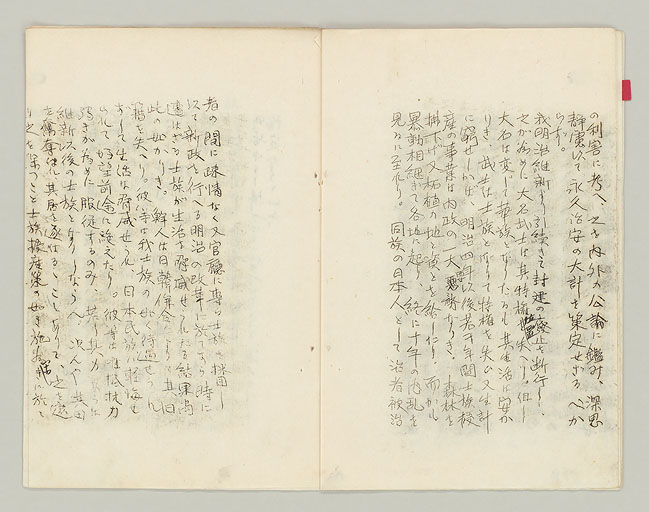 の利害に考へ、之を内外の公論に鑑み、深思
静慮以て永久治安の大計を策定せざる べか
らず。
我明治維新より引続きて封建の廃止を断行し、
之が為めに大名武士は其特権を失へり。但し
大名は変じて華族となりたるも其生活に安か
りき、武士は士族となりて特権を失ひ又生計
に窮せしかば、明治四年以後若干年間士族授
産の事業は内政の一大要務なりき、森林を
拂下げ又拓殖の地と資を給したり 而かも
暴動相継ぎて各地に起り、終に十年の内乱を
見るに至れり。同族の日本人として治者被治
者の間に疎情なく又官職に専ら士族を採用し
以て新政を行へる明治の改革に於てすら時に
遭はざる士族が生活を脅威せられたる結果尚
此の如かりき。鮮人は日韓併合により其国
籍を失へり、彼等は我士族の如く待遇せられ
ずして生活は脅威せられ、日本民族に軽侮せ
られて 希望前途に絶えたり。彼等は抵抗力
弱きが為めに服従するのみ、若し其力
維新以後の士族となりしならんへ、況んや其田
を奪 其居を逐はる ことありて、之を遠
之を保つこと士族授産策の如き施